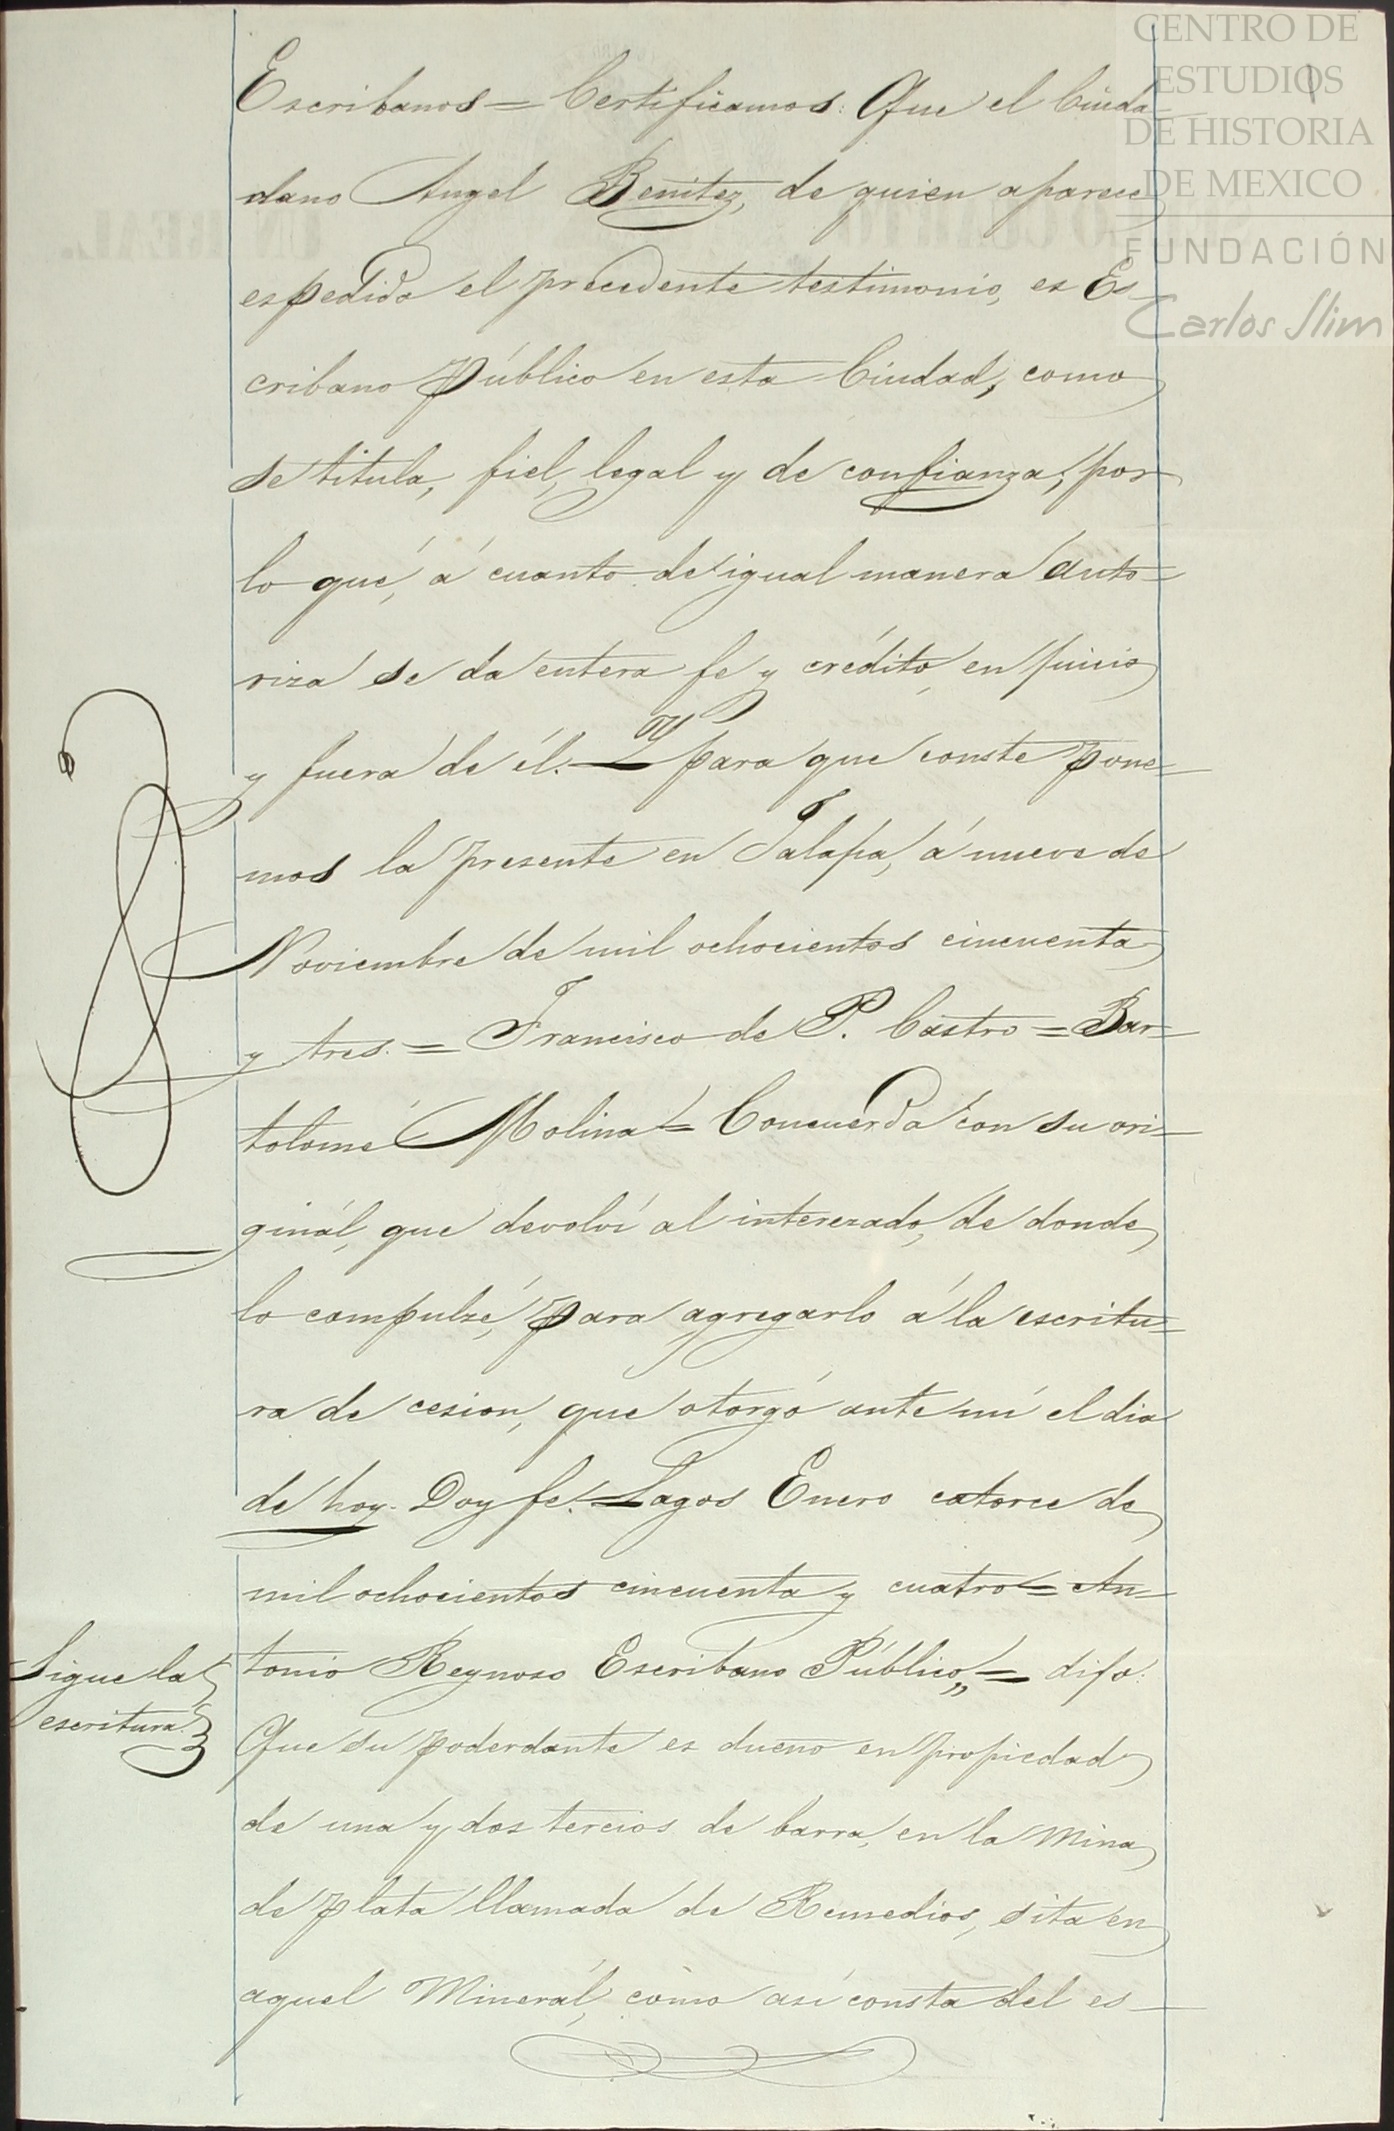 CENTRO DE
ESTUDIOS
DE HISTORIA
DE MEXICO
FUNDACIÓN
Carlos Slim
Escribanos = Certificamos: Que el Ciuda-
dano Angel Benitez, de quien aparece
espedido el precedente testimonio, es Es-
cribano Público en esta Ciudad, como
se titula, fiel, legal y de confianza, por
lo que, á cuanto de igual manera auto-
riza se da entera fe y crédito, en juicio
y fuera de él. = Y para que conste pone-
mos la presente en Jalapa, á nueve de
Noviembre de mil ochocientos cincuenta
y tres. = Francisco de P. Castro = Bar-
tolomé Molina = Concuerda con su ori-
ginál, que devolví al interezado, de donde
lo compulzé, para agregarlo á la escritu-
ra de cesion, que otorgó ante mí el dia
de hoy. Doy fe. = Lagos Enero catorce de
mil ochocientos cincuenta y cuatro = An-
tonio Reynoso Escribano Público„ = dijo:
Sigue la
escritura.
Que su poderdante es dueno en propiedad
de una y dos tercios de barra, en la Mina
de plata llamada de Remedios, sita en
aquel Minerál, cómo así consta del es-
UN REAL.